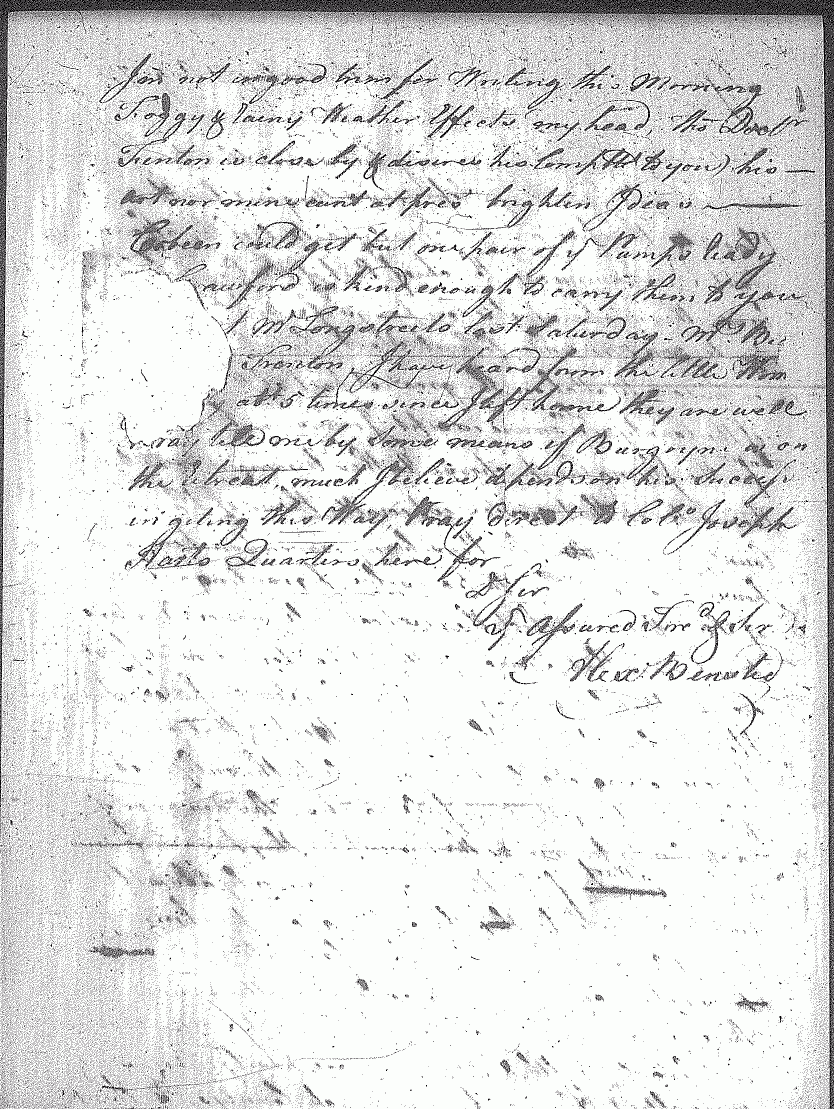 I am not in good trim for Writing this Morning
Foggy & rainy Weather Effects my head, tho Doctr
Trenton is close by (& desires his Complts to you) his —
art nor mine cant at pres brighten Ideas —
could get but one pair of ye Pumps
is kind enough to carry them to you
Mr Longstreets last Saturday. Mr
Trenton, I have heard from the little
abt 5 times since I left home they are well
pray tell me by some means if Burgoyne is on
the retreat, much I believe depends on his Success
in geting this Way, Pray direct to Colo Joseph
Harts Quarters here for
D Sir
yr Assured Fred & Ser
Alexr